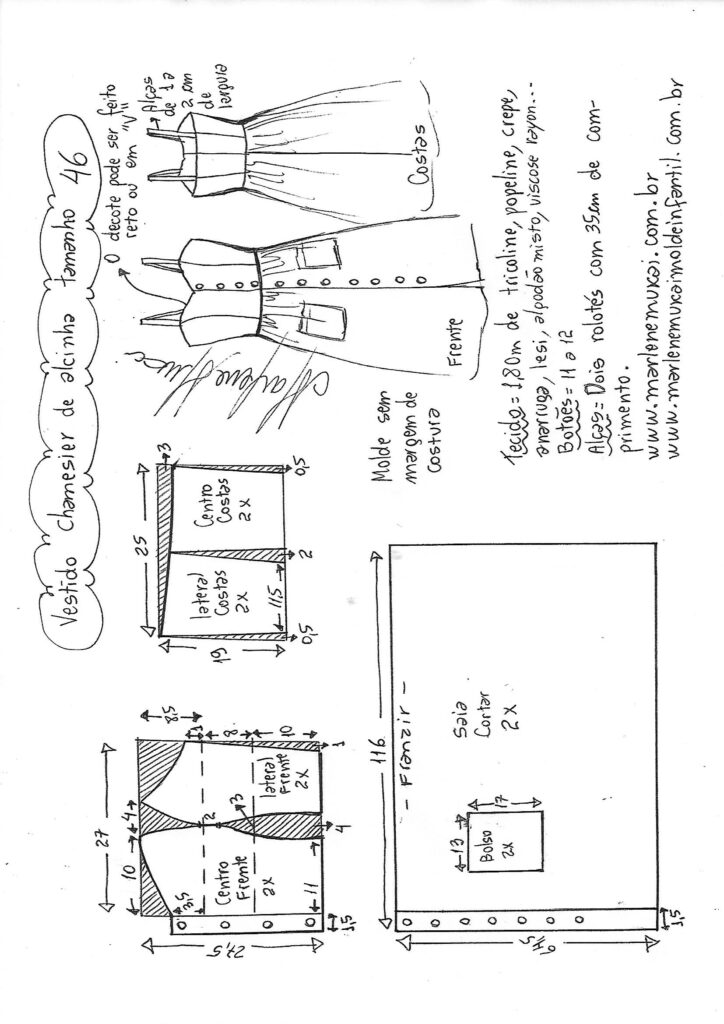 Vestido chamesier de alcinha tamanho 46
O decote pode ser feito
reto ou em "V"
Alças
de 1 a
2 cm
de
largura
Frente
Costas
Marlene Mukai
27
10
4
8,5
1
8
10
1
3,5
2
3
11
4
27,5
1,5
Centro
Frente
2x
lateral
Frente
2x
25
3
19
0,5
11,5
2
0,5
lateral
Costas
2x
Centro
Costas
2x
Molde sem
margem de
costura
116
- Franzir -
1,5
13
17
Bolso
2x
Saia
Cortar
2x
Tecido = 1,80m de tricoline, popeline, crepe,
anarruga, lesi, algodão misto, viscose rayon...
Botões = 11 a 12
Alças = Dois rolotés com 35cm de com-
primento.
www.marlenemukai.com.br
www.marlenemukaimoldeinfantil.com.br